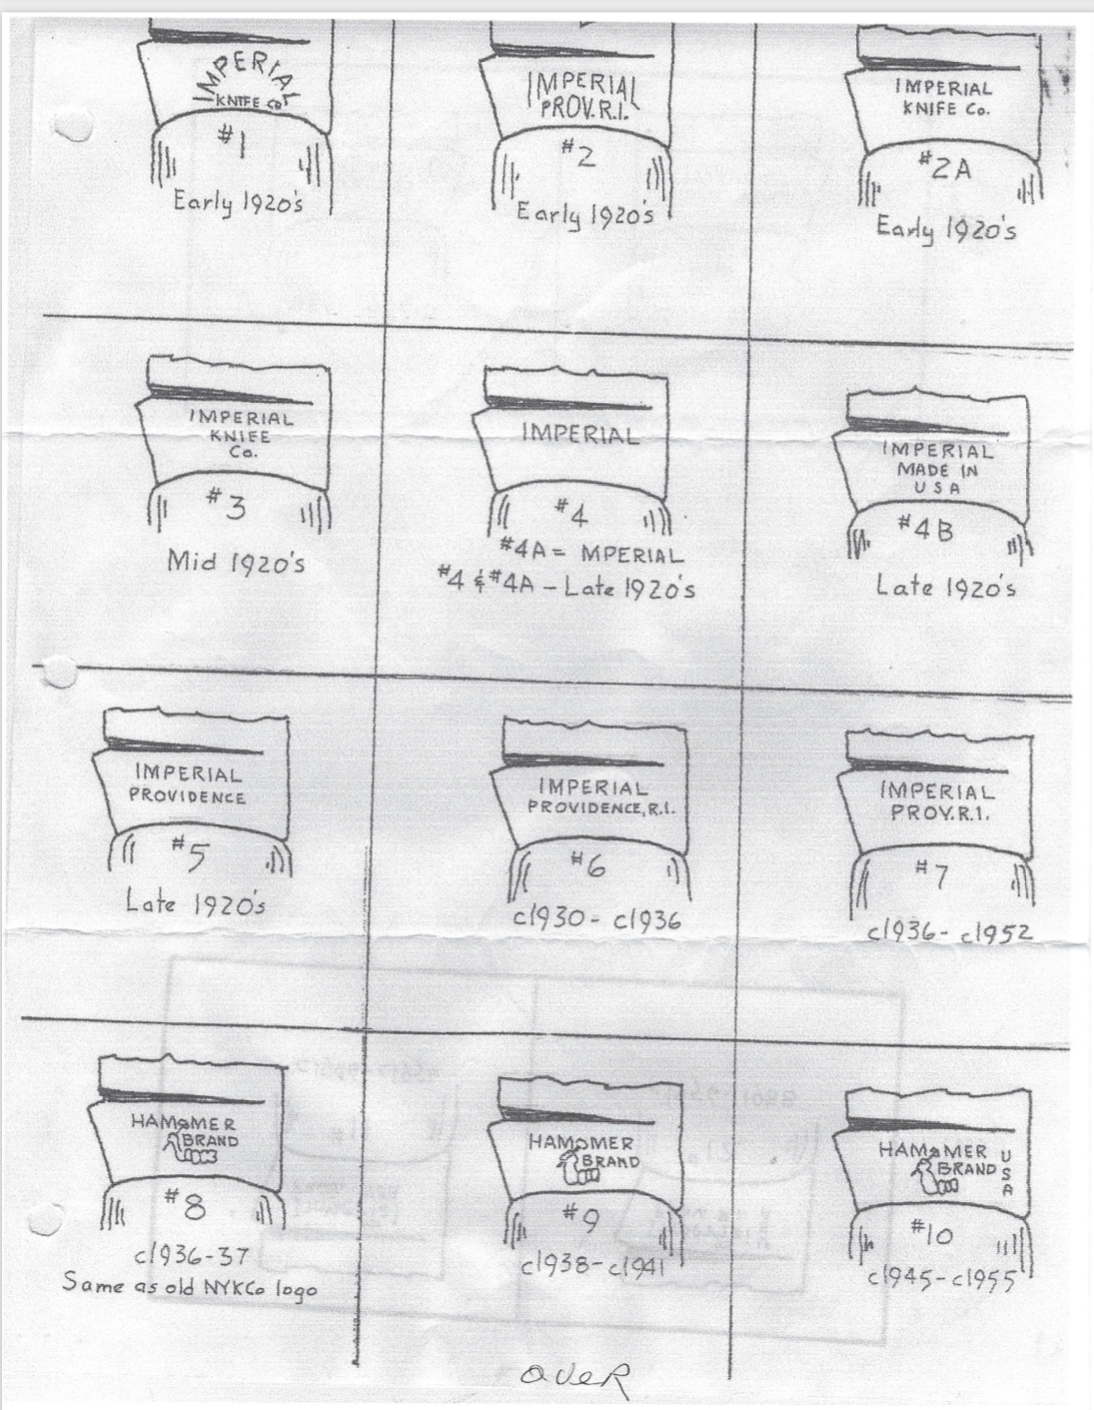 IMPERIAL
KNIFE Co
#1
Early 1920's
IMPERIAL
PROV. R.I.
#2
Early 1920's
IMPERIAL
KNIFE Co.
#2A
Early 1920's
IMPERIAL
KNIFE
Co.
#3
Mid 1920's
IMPERIAL
#4
#4A = MPERIAL
#4 & #4A - Late 1920's
IMPERIAL
MADE IN
USA
#4B
Late 1920's
IMPERIAL
PROVIDENCE
#5
Late 1920's
IMPERIAL
PROVIDENCE, R.I.
#6
c1930 - c1936
IMPERIAL
PROV. R.I.
#7
c1936 - c1952
HAMMER
BRAND
#8
c1936-37
Same as old NYKCo logo
HAMMER
BRAND
#9
c1938-c1941
HAMMER
BRAND
USA
#10
c1945-c1955
OVER